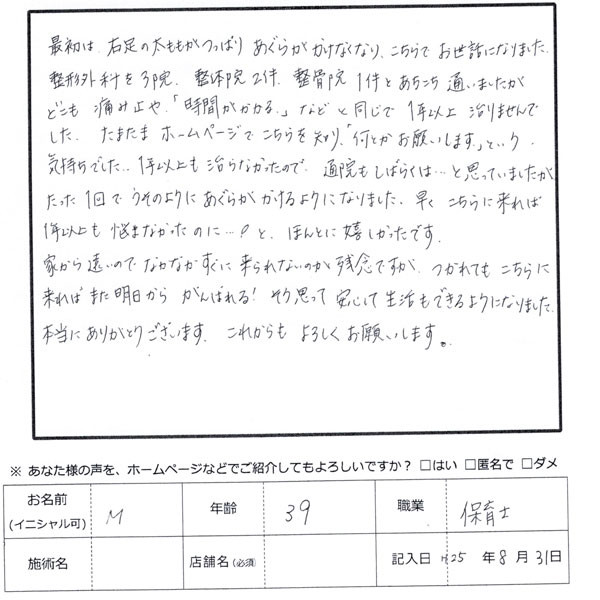 最初は、右足の太ももがつっぱり あぐらがかけなくなり、こちらで お世話になりました。
整形外科を3院、整体院2件、整骨院1件とあちこち通いましたが
どこも 痛み止や、「時間がかかる。」などと同じで 1年以上 治りませんで
した。たまたま ホームページで こちらを知り、「何とかお願いします。」という
気持ちでした… 1年以上も治らなかったので、通院もしばらくは…と思っていましたが、
たった1回で うそのように あぐらが かけるようになりました。早く こちらに来れば
1年以上も 悩まなかったのに…？と、ほんとに嬉しかったです。
家から遠いので なかなかすぐに 来られないのが 残念ですが、つかれても こちらに
来れば また明日から がんばれる！そう思って 安心して生活もできるようになりました。
本当にありがとうございます。これからも よろしくお願いします。
※ あなた様の声を、ホームページなどでご紹介してもよろしいですか？ □はい □匿名で □ダメ
お名前
(イニシャル可) M 年齢 39 職業 保育士
施術名 店舗名(必須) 記入日 H25 年 8 月 31 日